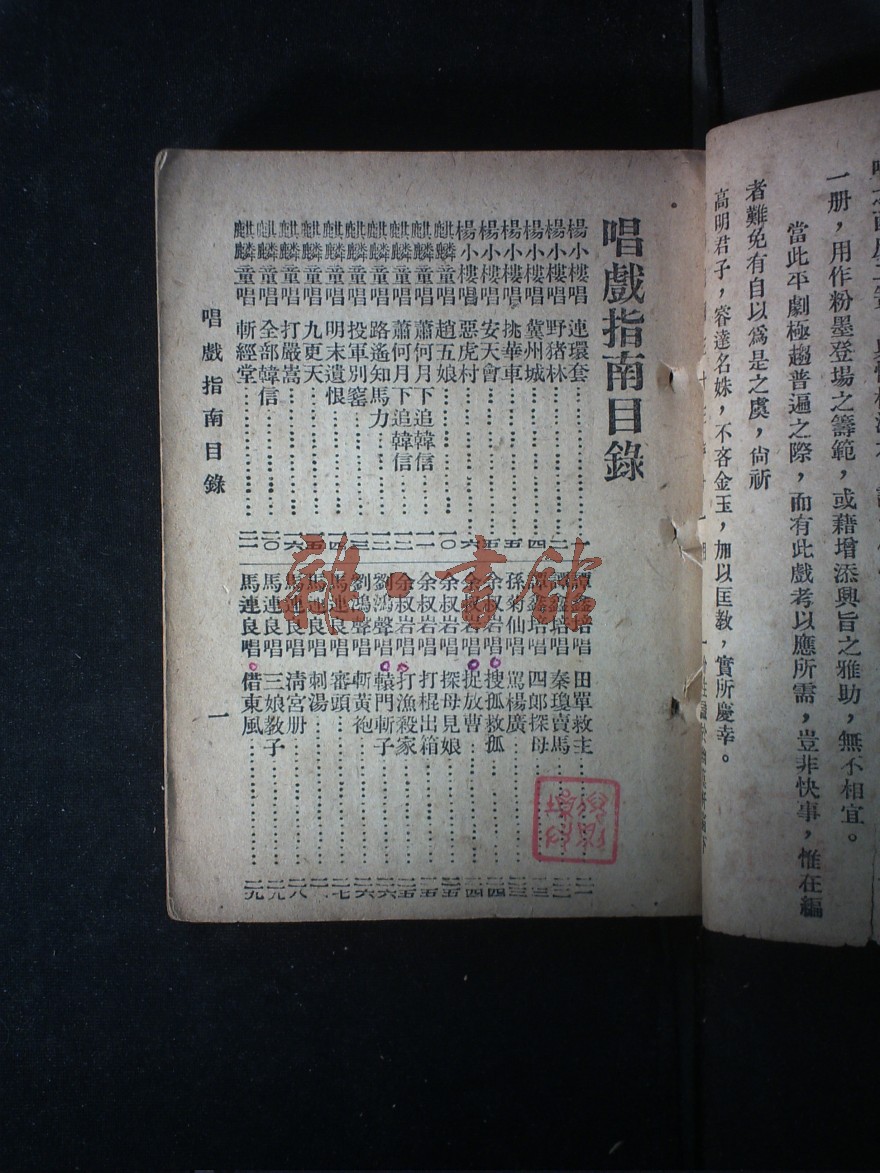 一册，用作粉墨登場之籌範，或藉增添興旨之雅助，無不相宜。
當此平劇極趨普遍之際，而有此戲考以應所需，豈非快事，惟在編
者難免有自以爲是之虞，尙祈
高明君子，容達名姝，不吝金玉，加以匡教，實所慶幸。
唱戲指南目錄
楊小樓唱 連環套
楊小樓唱 野猪林
楊小樓唱 冀州城 四
楊小樓唱 挑華車 五
楊小樓唱 安天會
楊小樓唱 惡虎村 六
麒麟童唱 趙五娘 一〇
麒麟童唱 蕭何月下追韓信 一一
麒麟童唱 蕭何月下追韓信
麒麟童唱 路遙知馬力
麒麟童唱 投軍別窰
麒麟童唱 明末遺恨
麒麟童唱 九更天
麒麟童唱 打嚴嵩 一六
麒麟童唱 全部韓信 二〇
麒麟童唱 斬經堂
譚鑫培唱 田單救主
譚鑫培唱 秦瓊賣馬
譚鑫培唱 四郎探母
孫菊仙唱 罵楊廣
余叔岩唱 搜孤救孤 二四
余叔岩唱 捉放曹 二四
余叔岩唱 探母見娘 二五
余叔岩唱 打棍出箱 二五
余叔岩唱 打漁殺家 二五
劉鴻聲唱 轅門斬子 二六
劉鴻聲唱 斬黃袍 二六
馬連良唱 審頭 二七
馬連良唱 刺湯
馬連良唱 清宮册 二八
馬連良唱 三娘教子 二九
馬連良唱 借東風 二九
唱戲指南目錄
一
雜·書館